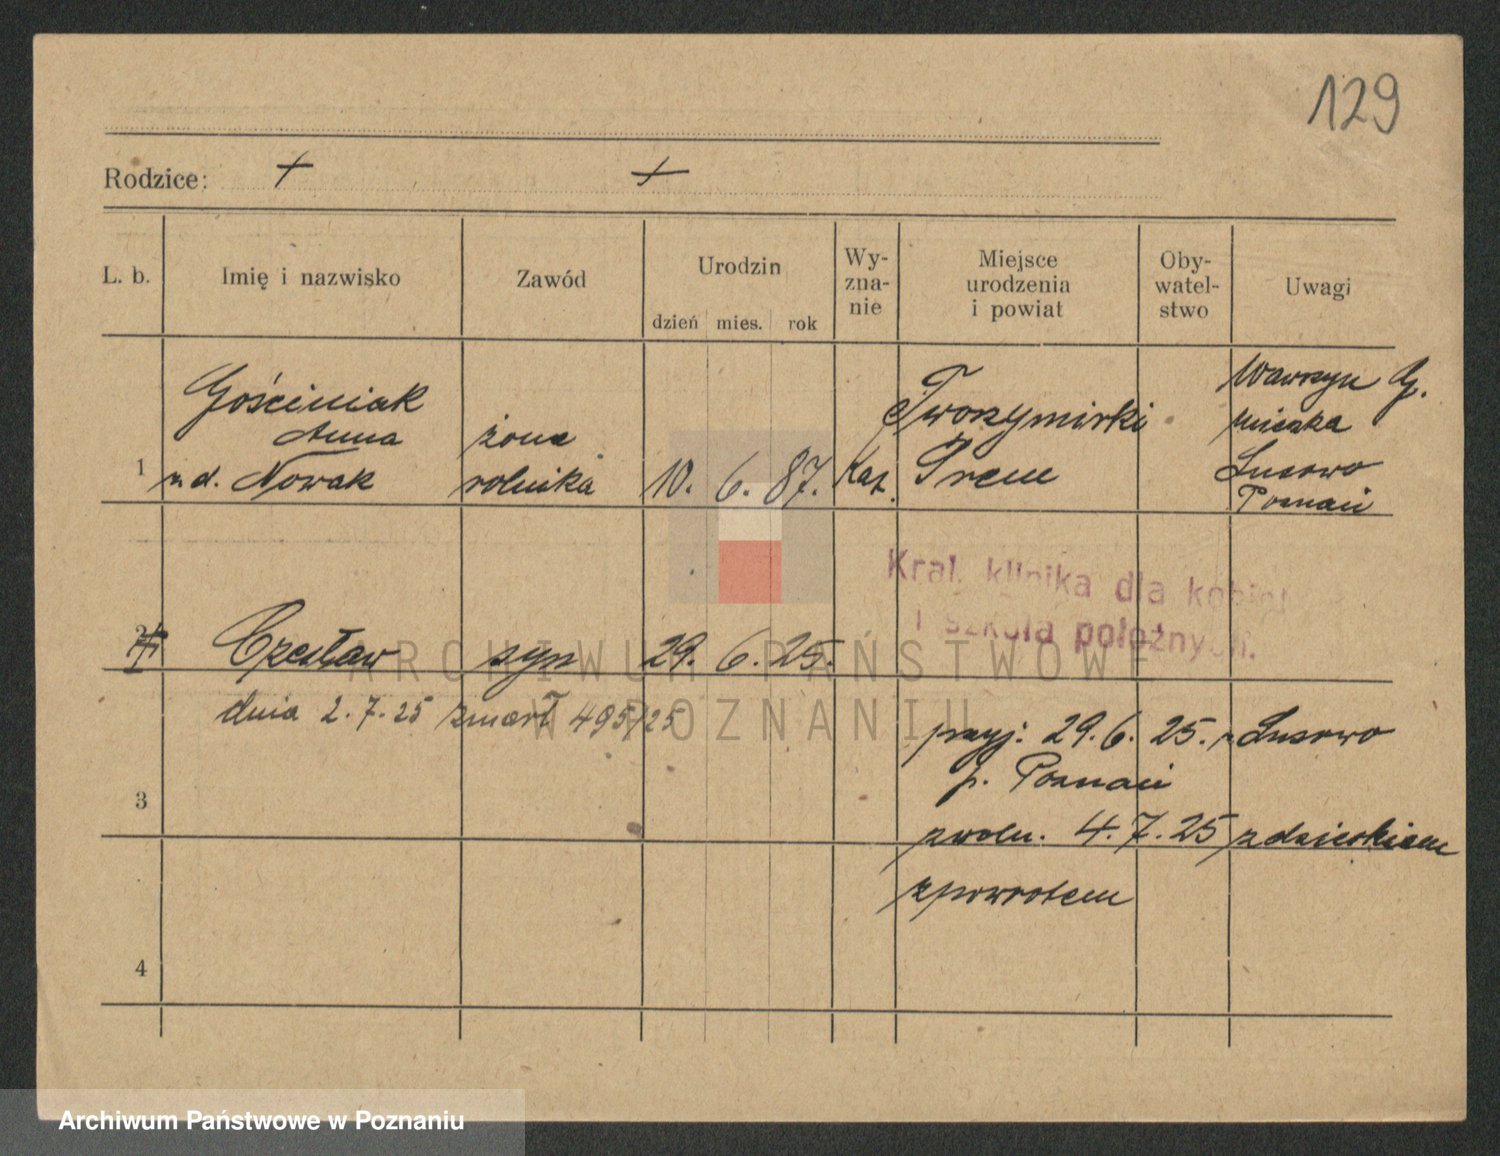 129
Rodzice: + +
L. b. Imię i nazwisko Zawód Urodzin dzień mies. rok Wy-zna-nie Miejsce urodzenia i powiat Oby-watel-stwo Uwagi
Gościniak Wawrzyn G.
Anna żona Tworzymirki mieszka
1 z d. Nowak rolnika 10. 6. 87. Kat. Śrem Lusowo
Poznań
Kral. klinika dla kobiet
i szkoła położnych.
Czesław syn 29. 6. 25.
dnia 2.7.25 zmarł 495/25
przyj: 29. 6. 25. z Lusowo
p. Poznań
3
zwoln. 4. 7. 25 z dzieckiem
zpowrotem
4
ARCHIWUM PAŃSTWOWE
W POZNANIU
Archiwum Państwowe w Poznaniu